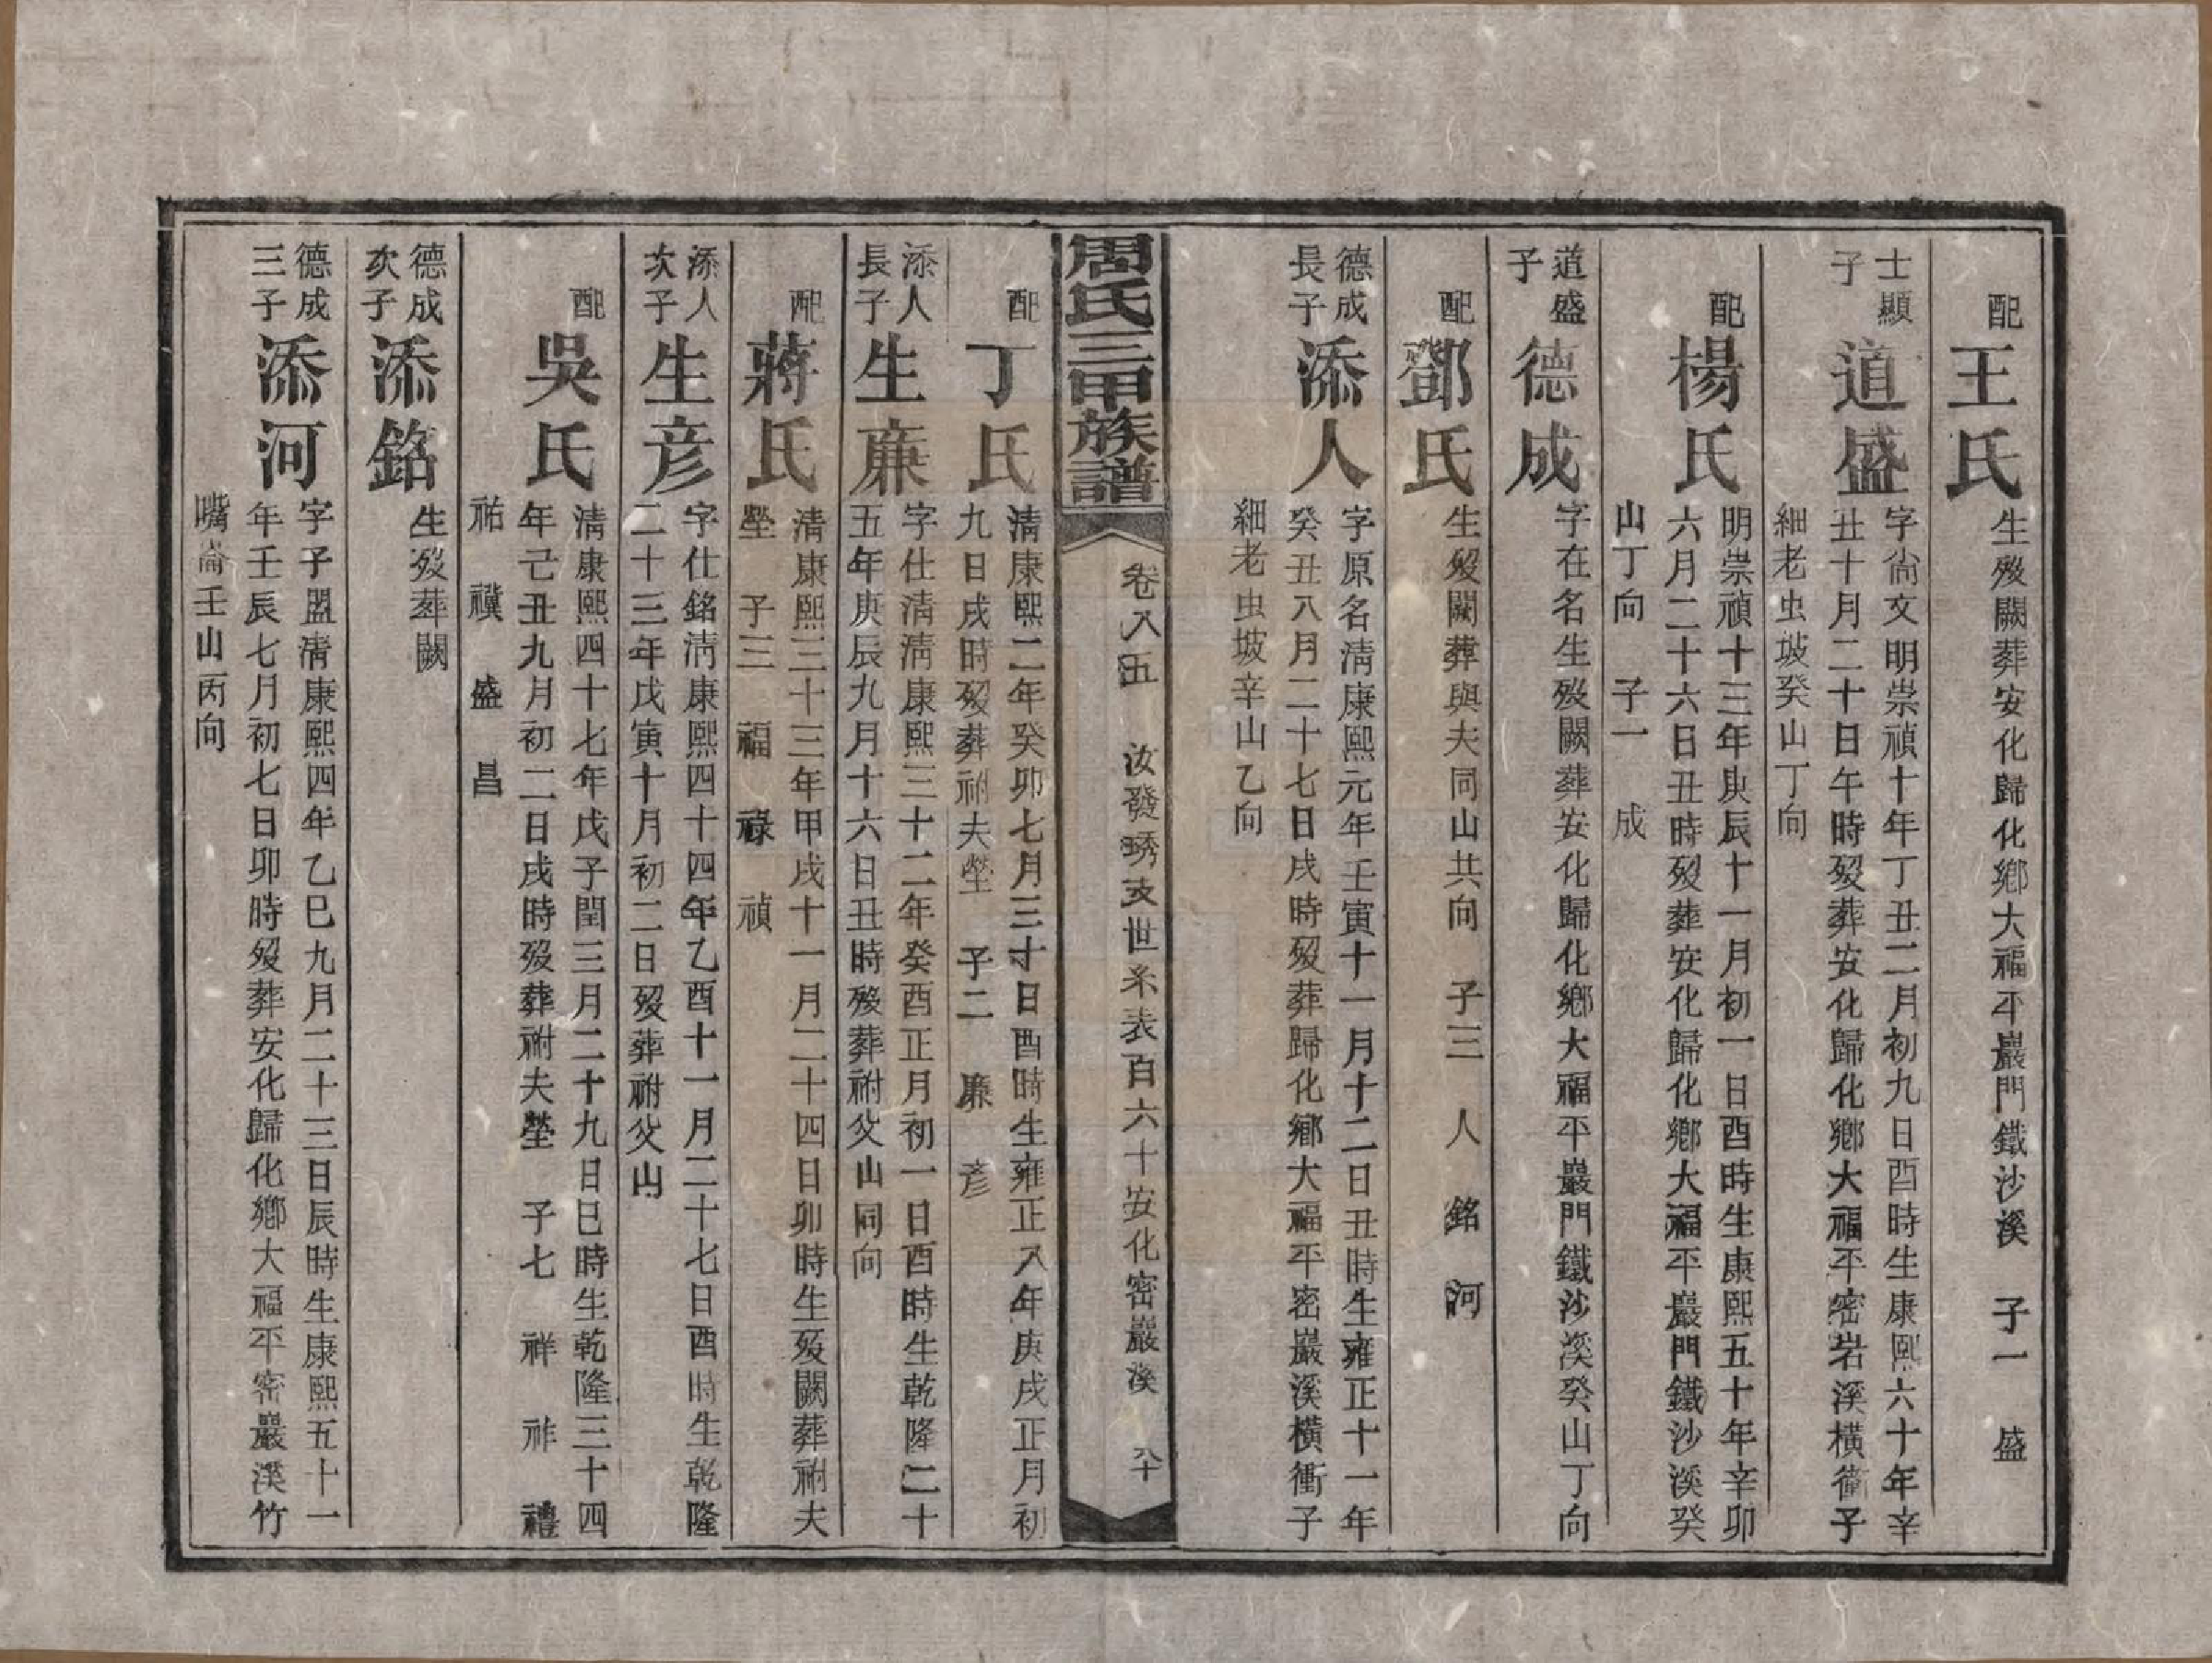 配王氏
生歿闕葬安化歸化鄉大福平巖門鐵沙溪 子一 盛
士顯子道盛
字尙文明崇禎十年丁丑二月初九日酉時生康熙六十年辛
丑十月二十日午時歿葬安化歸化鄉大福平密岩溪橫衝子
細老虫坡癸山丁向
配楊氏
明崇禎十三年庚辰十一月初一日酉時生康熙五十年辛卯
六月二十六日丑時歿葬安化歸化鄉大福平巖門鐵沙溪癸
山丁向 子一 成
道盛子德成
字在名生歿闕葬安化歸化鄉大福平巖門鐵沙溪癸山丁向
配鄧氏
生歿闕葬與夫同山共向 子三 人 銘 河
德成長子添人
字原名淸康熙元年壬寅十一月十二日丑時生雍正十一年
癸丑八月二十七日戌時歿葬歸化鄉大福平密巖溪橫衝子
細老虫坡辛山乙向
周氏三甲族譜
卷八五 汝發琇支世系表百六十安化密巖溪 卆
配丁氏
淸康熙二年癸卯七月三十日酉時生雍正八年庚戌正月初
九日戌時歿葬祔夫塋 子二 廉 彦
添人長子生廉
字仕淸淸康熙三十二年癸酉正月初一日酉時生乾隆二十
五年庚辰九月十六日丑時歿葬祔父山同向
配蔣氏
淸康熙三十三年甲戌十一月二十四日卯時生歿闕葬祔夫
塋 子三 福 祿 禎
添人次子生彦
字仕銘淸康熙四十四年乙酉十一月二十七日酉時生乾隆
二十三年戊寅十月初二日歿葬祔父山
配吳氏
淸康熙四十七年戊子閏三月二十九日巳時生乾隆三十四
年己丑九月初二日戌時歿葬祔夫塋 子七 祥 祚 禮
祐 禩 盛 昌
德成次子添銘
生歿葬闕
德成三子添河
字子盟淸康熙四年乙巳九月二十三日辰時生康熙五十一
年壬辰七月初七日卯時歿葬安化歸化鄉大福平密巖溪竹
嘴崙壬山丙向